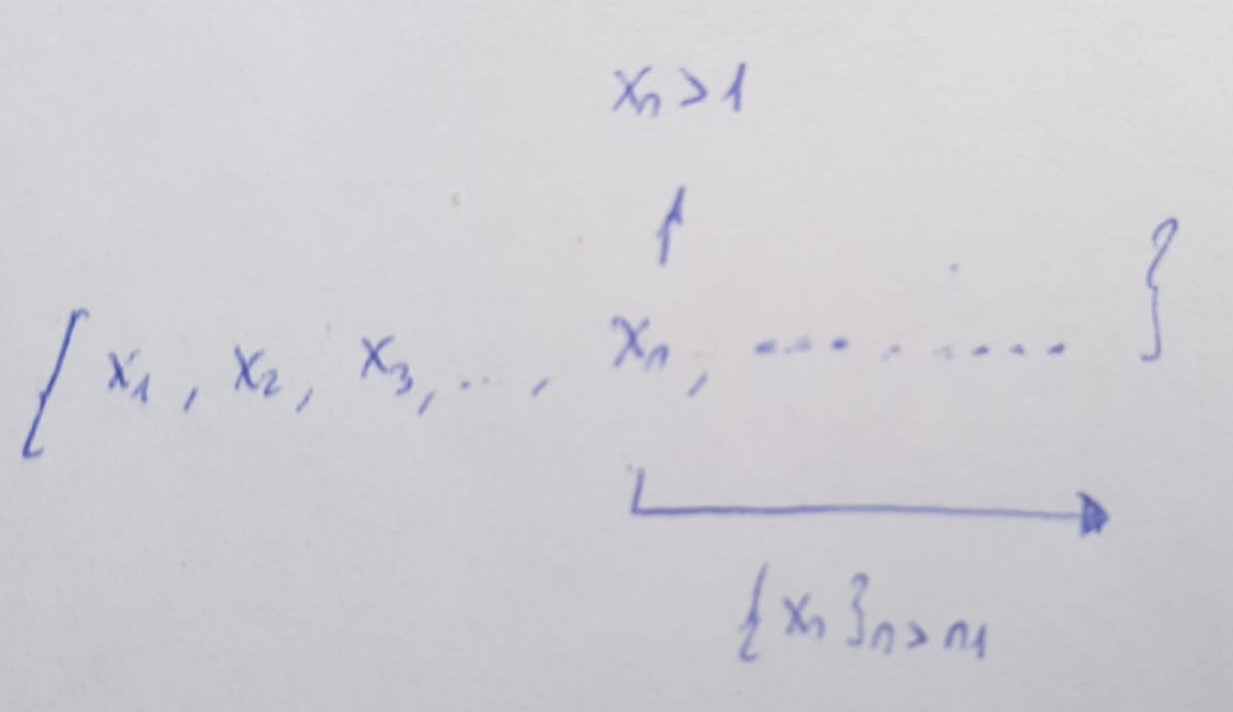 xₙ > 1
{ x₁ , x₂ , x₃ , ... , xₙ , ........... }
{ xₙ }ₙ > ₙ₁